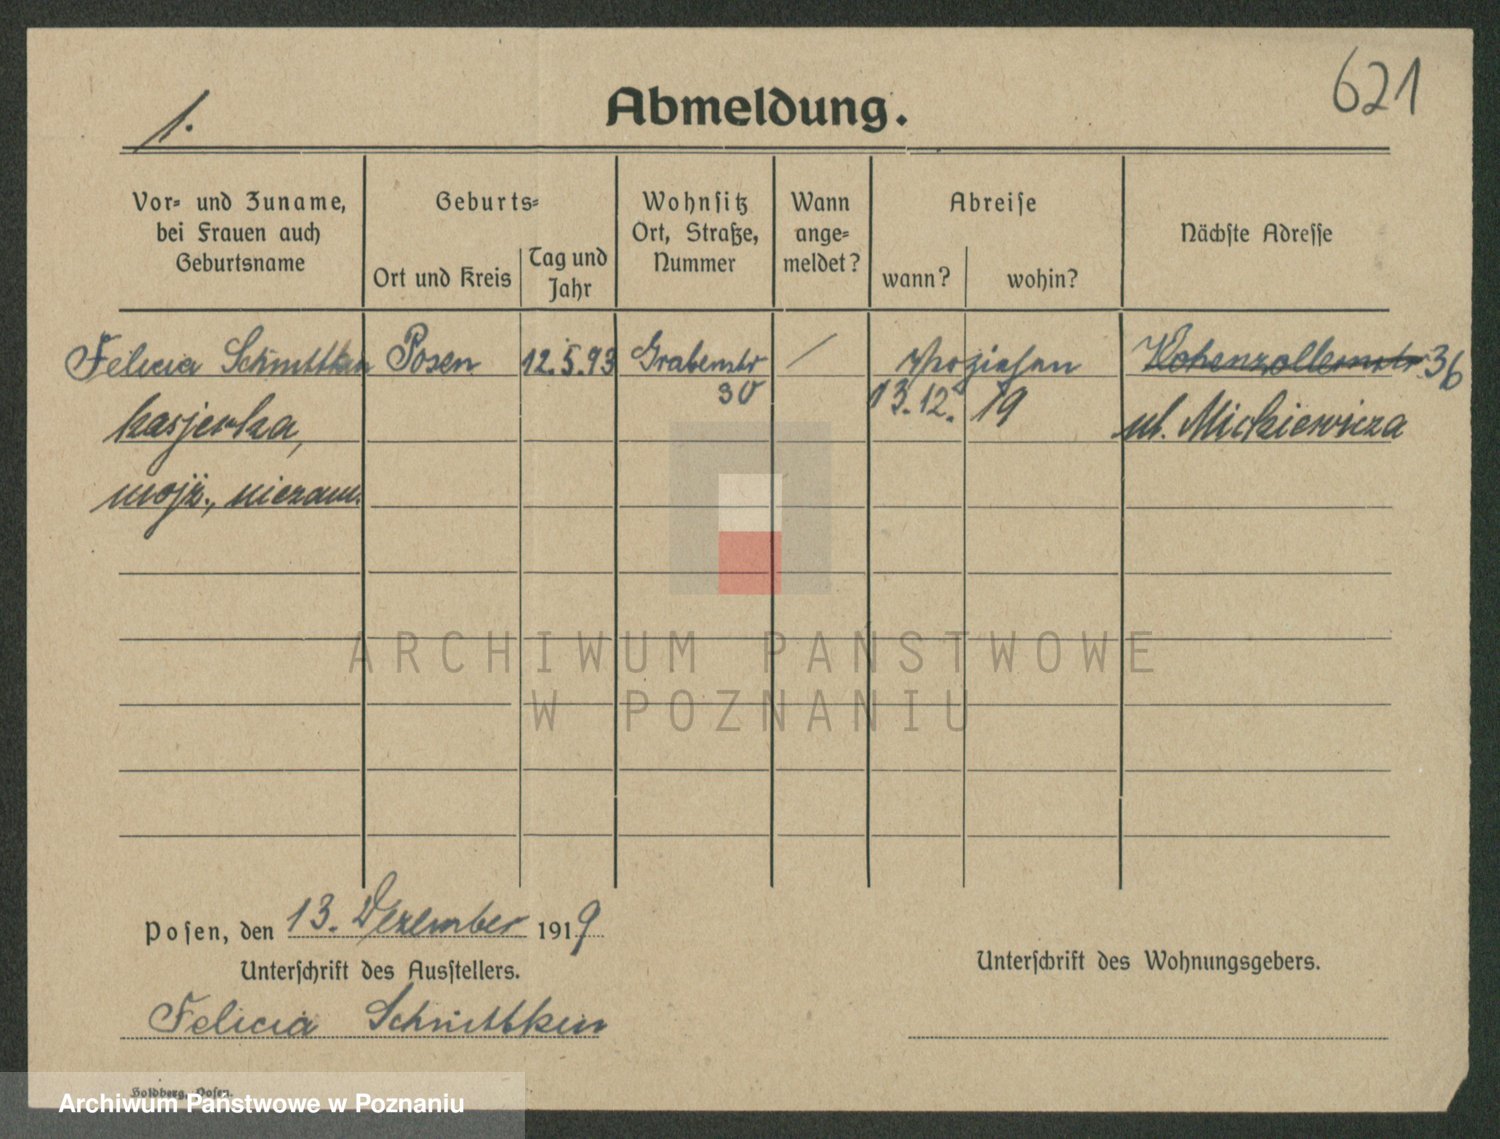 1.
Abmeldung.
621
Vor- und Zuname,
bei Frauen auch
Geburtsname
Geburts-
Ort und Kreis
Tag und
Jahr
Wohnsitz
Ort, Straße,
Nummer
Wann
ange-
meldet?
Abreise
wann?
wohin?
Nächste Adresse
Felicia Schnittken
Posen
12.5.93
Grabenstr
30
/
13.12. 19
Hohenzollernstr. 36
ul. Mickiewicza
kasjerka,
mojż., niezam.
ARCHIWUM PAŃSTWOWE
W POZNANIU
Posen, den 13. Dezember 1919
Unterschrift des Ausstellers.
Felicia Schnittken
Unterschrift des Wohnungsgebers.
Goldberg, Posen.
Archiwum Państwowe w Poznaniu